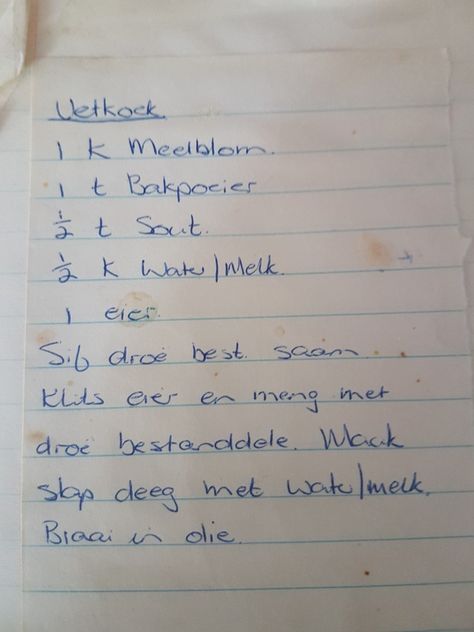 Vetkoek
1 k Meelblom.
1 t Bakpoeier
½ t Sout.
½ k Water/Melk.
1 eier.
Sif droë best. saam.
Klits eier en meng met
droë bestanddele. Maak
slap deeg met water/melk.
Braai in olie.